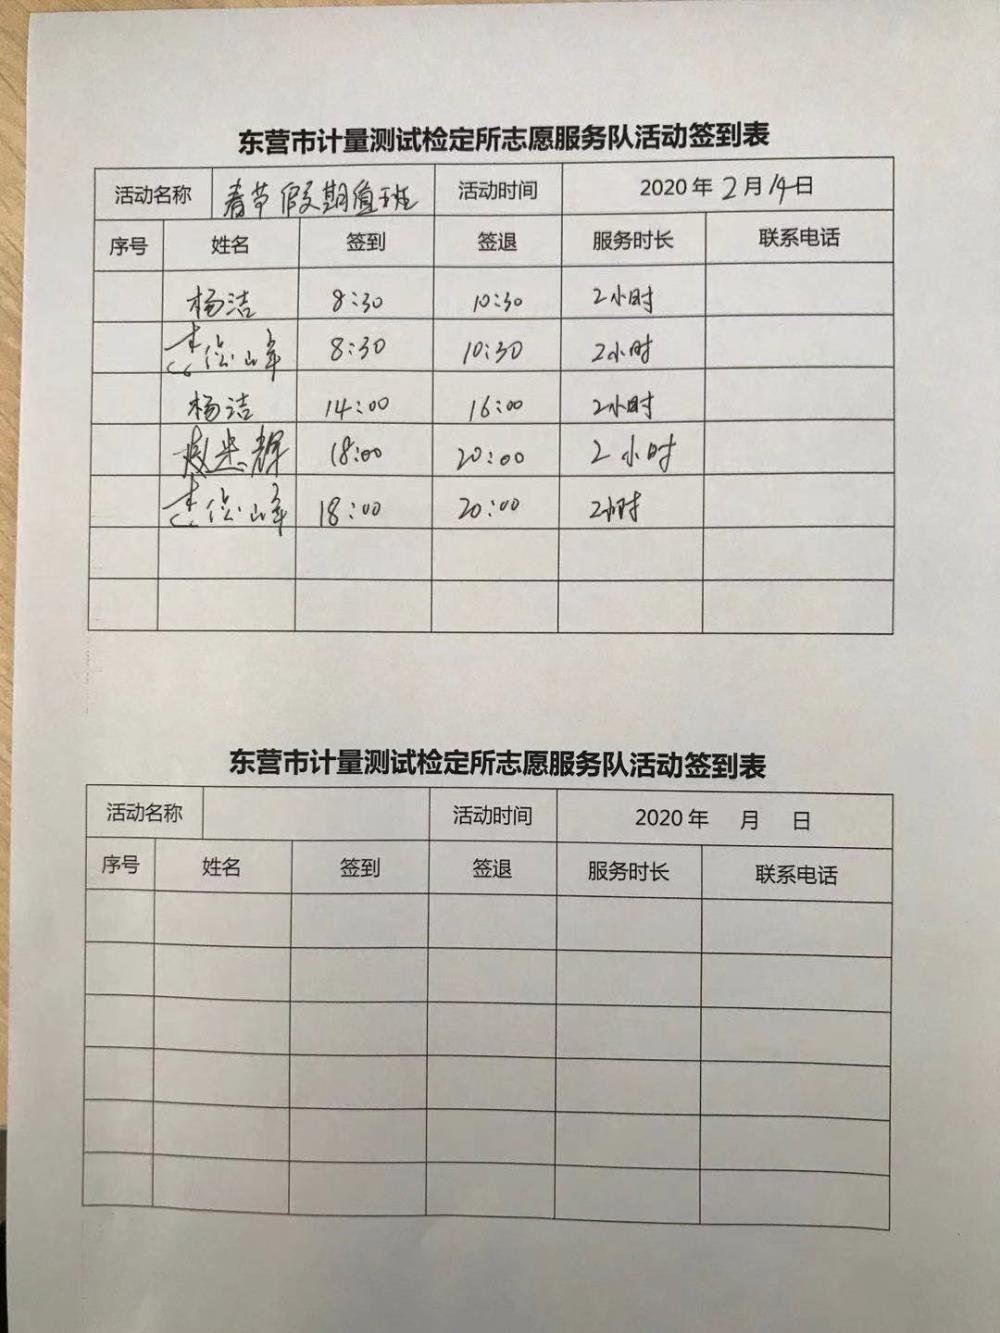 东营市计量测试检定所志愿服务队活动签到表
活动名称 春节假期值班 活动时间 2020 年 2 月 14 日
序号 姓名 签到 签退 服务时长 联系电话
杨洁 8:30 10:30 2小时
8:30 10:30 2小时
杨洁 14:00 16:00 2小时
18:00 20:00 2小时
18:00 20:00 2小时
东营市计量测试检定所志愿服务队活动签到表
活动名称 活动时间 2020 年 月 日
序号 姓名 签到 签退 服务时长 联系电话